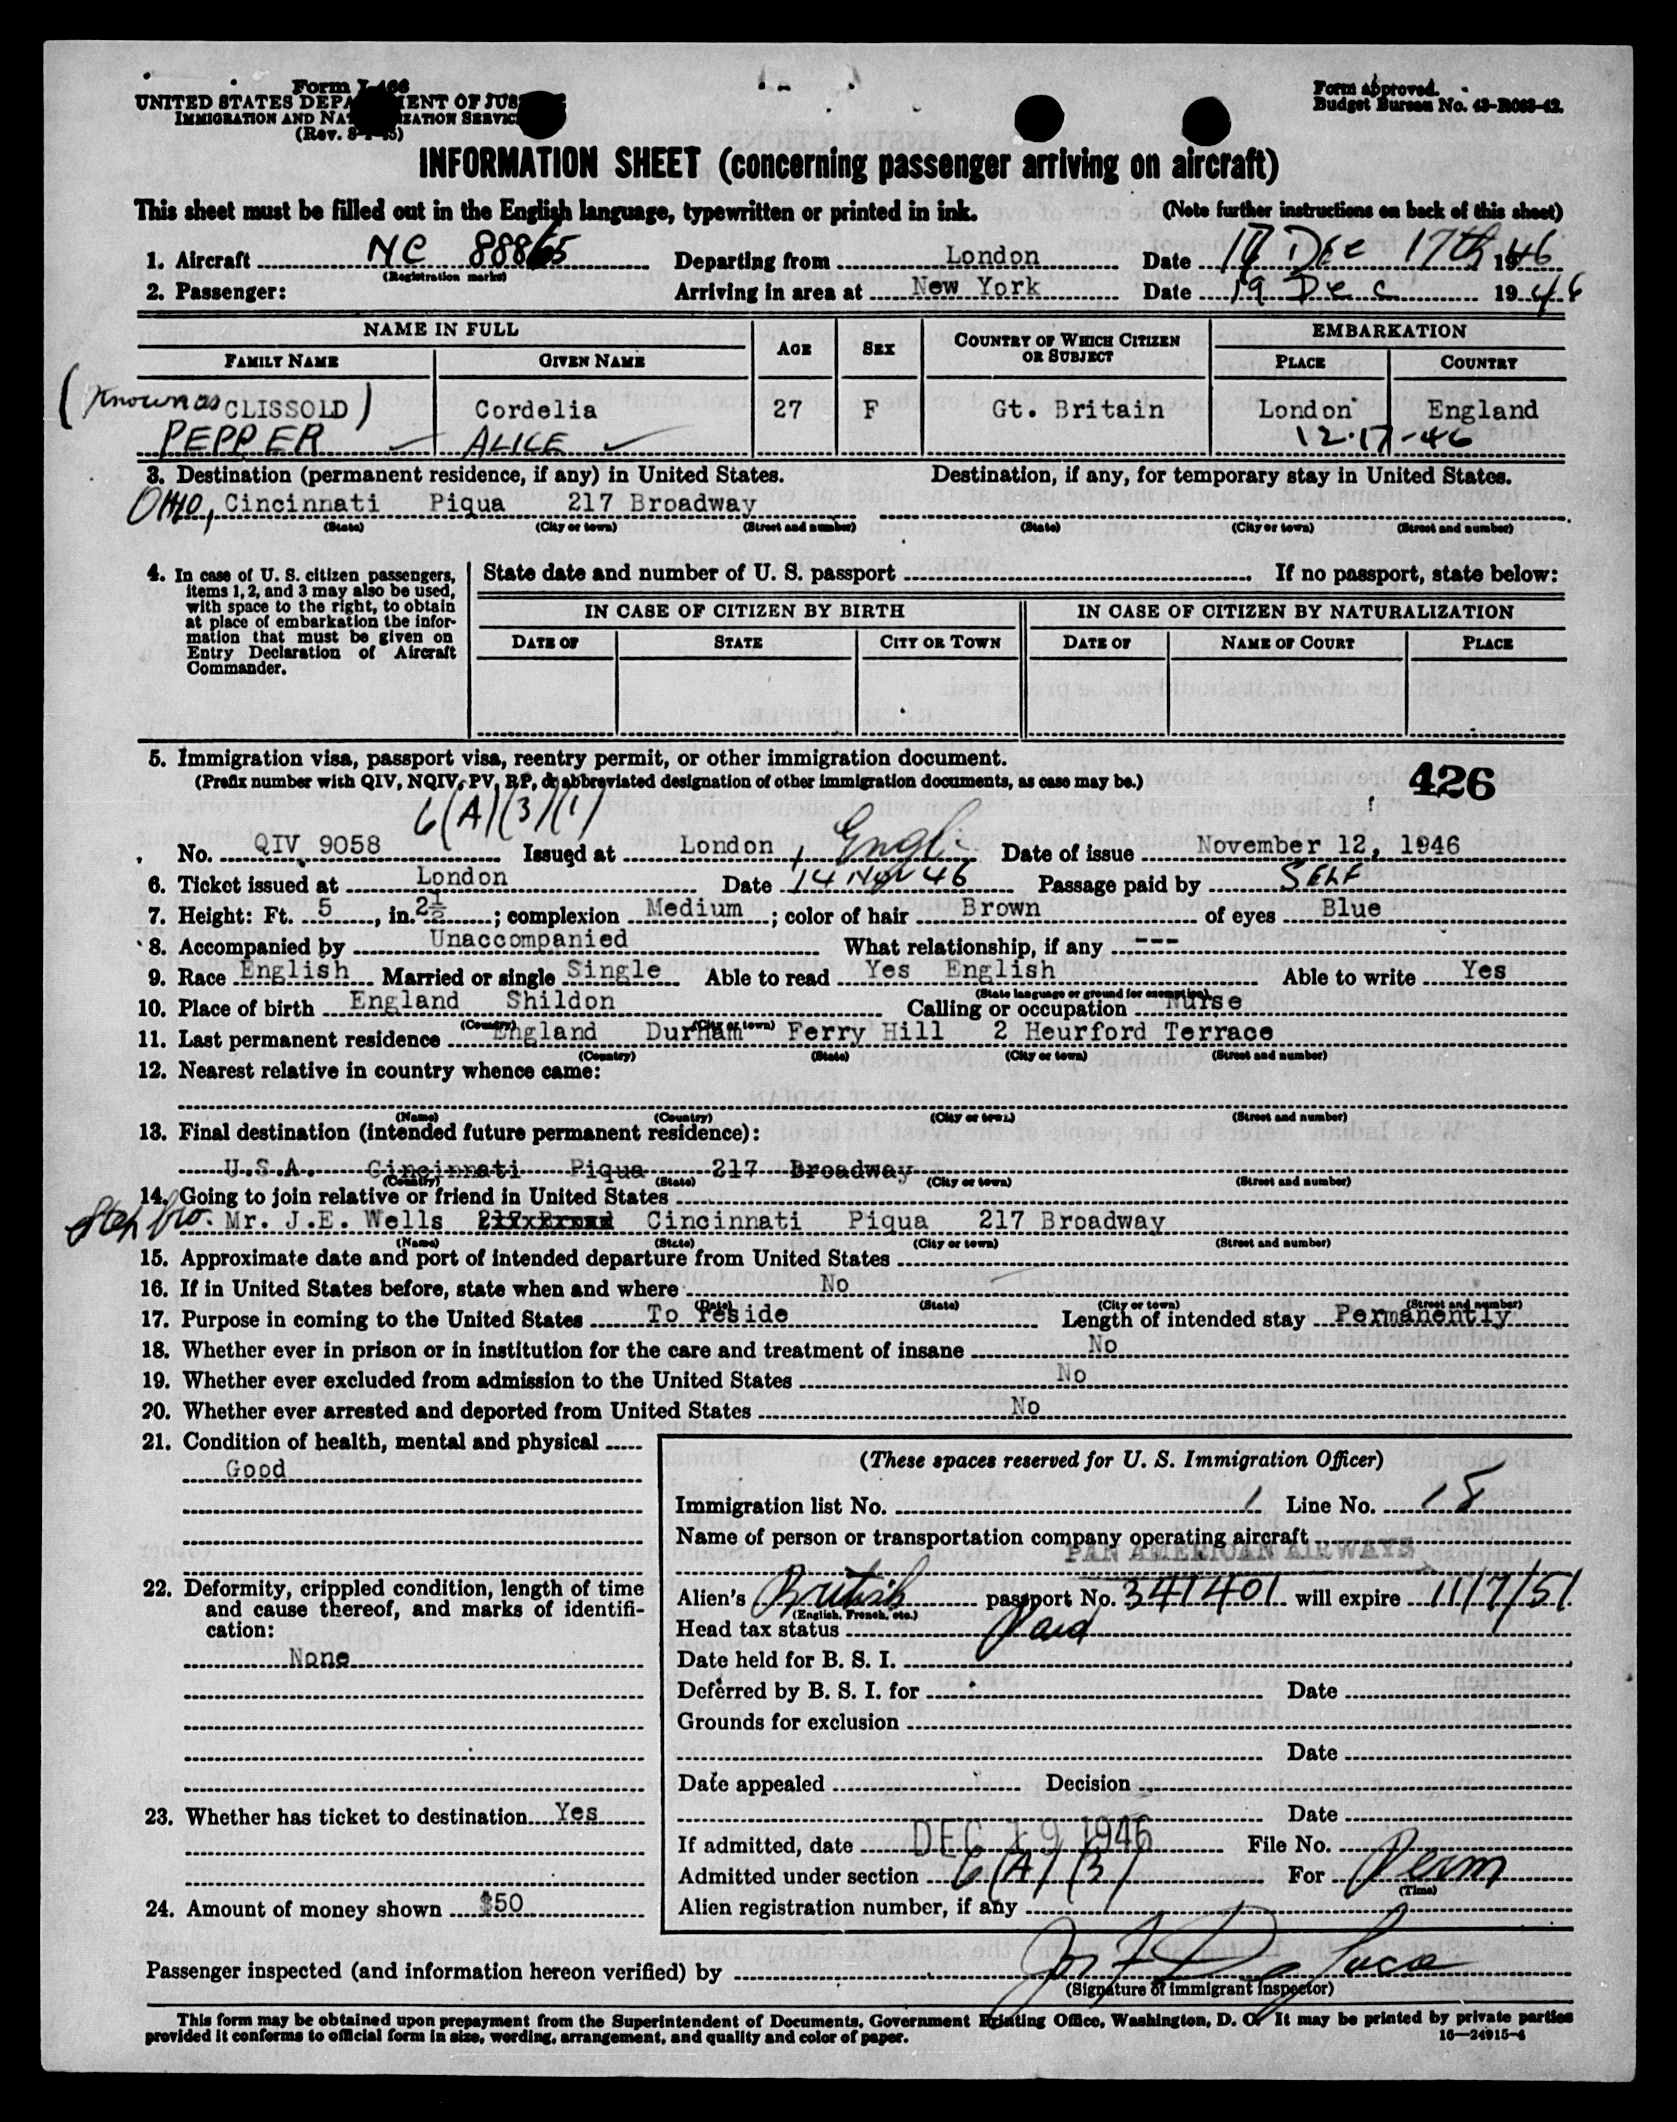 Form I-466
UNITED STATES DEPARTMENT OF JUSTICE
IMMIGRATION AND NATURALIZATION SERVICE
(Rev. 8-1-45)
Form approved.
Budget Bureau No. 43-R063-42.
INFORMATION SHEET (concerning passenger arriving on aircraft)
This sheet must be filled out in the English language, typewritten or printed in ink. (Note further instructions on back of this sheet)
1. Aircraft NC 88865 Departing from London Date 17 Dec 17th 1946
(Registration marks)
2. Passenger: Arriving in area at New York Date 19 Dec 1946
NAME IN FULL AGE SEX COUNTRY OF WHICH CITIZEN OR SUBJECT EMBARKATION
FAMILY NAME GIVEN NAME PLACE COUNTRY
(Known as CLISSOLD) Cordelia 27 F Gt. Britain London England
PEPPER ALICE 12-17-46
3. Destination (permanent residence, if any) in United States. Destination, if any, for temporary stay in United States.
OHIO, Cincinnati Piqua 217 Broadway
(State) (City or town) (Street and number) (State) (City or town) (Street and number)
4. In case of U. S. citizen passengers, items 1, 2, and 3 may also be used, with space to the right, to obtain at place of embarkation the information that must be given on Entry Declaration of Aircraft Commander.
State date and number of U. S. passport If no passport, state below:
IN CASE OF CITIZEN BY BIRTH IN CASE OF CITIZEN BY NATURALIZATION
DATE OF STATE CITY OR TOWN DATE OF NAME OF COURT PLACE
5. Immigration visa, passport visa, reentry permit, or other immigration document.
(Prefix number with QIV, NQIV, PV, RP, or abbreviated designation of other immigration documents, as case may be.) 426
6(A)(3)(1)
No. QIV 9058 Issued at London, Engl. Date of issue November 12, 1946
6. Ticket issued at London Date 14 Nov 46 Passage paid by SELF
7. Height: Ft. 5, in. 2½; complexion Medium; color of hair Brown of eyes Blue
8. Accompanied by Unaccompanied What relationship, if any ---
9. Race English Married or single Single Able to read Yes English Able to write Yes
(State language or ground for exemption)
10. Place of birth England Shildon Calling or occupation Nurse
(Country) (City or town)
11. Last permanent residence England Durham Ferry Hill 2 Heurford Terrace
(Country) (State) (City or town) (Street and number)
12. Nearest relative in country whence came:
(Name) (Country) (City or town) (Street and number)
13. Final destination (intended future permanent residence):
U.S.A. Cincinnati Piqua 217 Broadway
(Country) (State) (City or town) (Street and number)
14. Going to join relative or friend in United States
Step bro. Mr. J.E. Wells Cincinnati Piqua 217 Broadway
(Name) (State) (City or town) (Street and number)
15. Approximate date and port of intended departure from United States
16. If in United States before, state when and where No
(Date) (State) (City or town) (Street and number)
17. Purpose in coming to the United States To reside Length of intended stay Permanently
18. Whether ever in prison or in institution for the care and treatment of insane No
19. Whether ever excluded from admission to the United States No
20. Whether ever arrested and deported from United States No
21. Condition of health, mental and physical
Good
22. Deformity, crippled condition, length of time and cause thereof, and marks of identification:
None
23. Whether has ticket to destination Yes
24. Amount of money shown $50
(These spaces reserved for U. S. Immigration Officer)
Immigration list No. 1 Line No. 18
Name of person or transportation company operating aircraft
PAN AMERICAN AIRWAYS
Alien's British passport No. 341401 will expire 11/7/51
(English, French, etc.)
Head tax status Paid
Date held for B. S. I.
Deferred by B. S. I. for Date
Grounds for exclusion
Date
Date appealed Decision
Date
If admitted, date DEC 19 1946 File No.
Admitted under section 6(A)(3) For Perm
(Time)
Alien registration number, if any
Passenger inspected (and information hereon verified) by
(Signature of immigrant inspector)
This form may be obtained upon prepayment from the Superintendent of Documents, Government Printing Office, Washington, D. C. It may be printed by private parties
provided it conforms to official form in size, wording, arrangement, and quality and color of paper. 16—24915-4